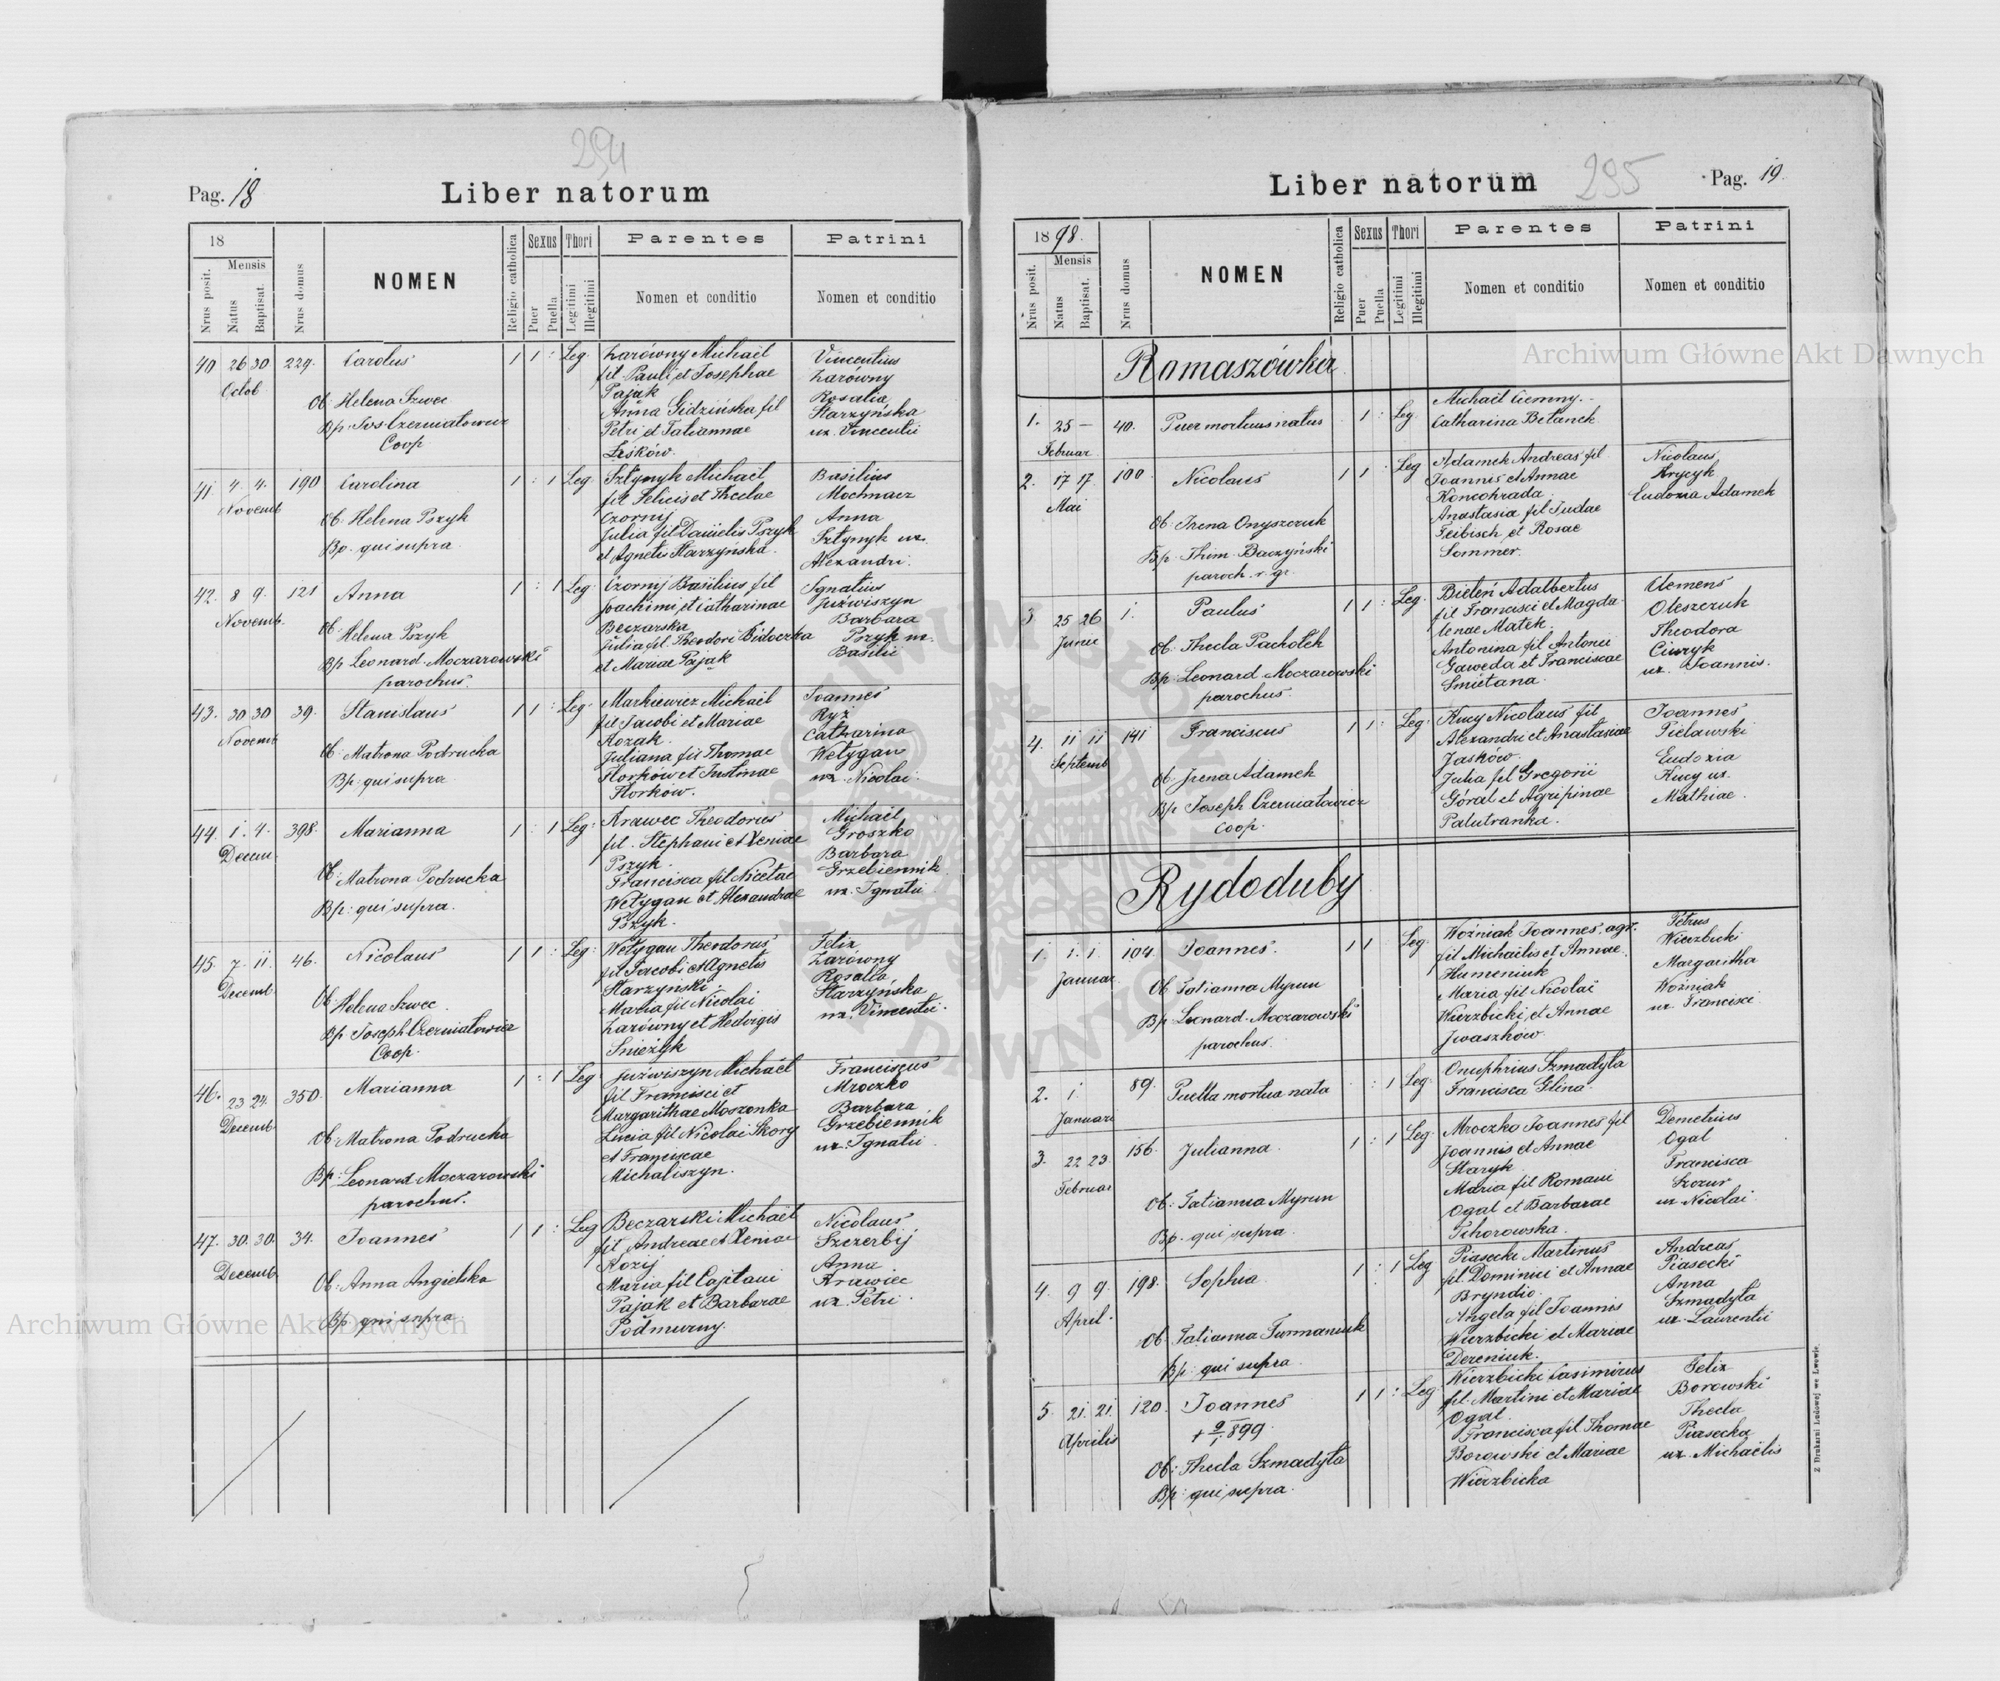 294
Pag. 18
Liber natorum
18
Nrus posit.
Mensis
Natus
Baptisat.
Nrus domus
NOMEN
Religio catholica
Sexus
Puer
Puella
Thori
Legitimi
Illegitimi
Parentes
Nomen et conditio
Patrini
Nomen et conditio
40 26 30 229. Carolus 1 1 : Leg.
Octob.
Ob. Helena Szwec
Bp. Jos. Czerniatowicz
Coop
Zarówny Michaël
fil. Pauli et Josephae
Pająk
Anna Gidzińska fil
Petri et Tatiannae
Liśków.
Vincentius
Zarówny
Rosalia
Starzyńska
ux. Vincentii
41 4. 4. 190 Carolina 1 : 1 Leg.
Novemb
Ob. Helena Pszyk
Bp. qui supra.
Sztynyk Michaël
fil Felicis et Theclae
Czornij
Julia fil Danielis Pszyk
et Agnetis Starzyńska.
Basilius
Mochnacz
Anna
Sztynyk ux.
Alexandri.
42. 8 9. 121 Anna 1 : 1 Leg.
Novemb.
Ob. Helena Pszyk
Bp Leonard Moczarowski
parochus.
Czornij Basilius fil
Joachimi et Catharinae
Beczarska
Julia fil. Theodori Bidoczka
et Mariae Pająk
Ignatius
Juźwiszyn
Barbara
Pszyk ux.
Basilii
43. 30 30 39. Stanislaus 1 1 : Leg.
Novemb
Ob. Matrona Podrucka
Bp. qui supra.
Markiewicz Michaël
fil Jacobi et Mariae
Kozak.
Juliana fil Thomae
Horków et Justinae
Horków.
Joannes
Ryż
Catharina
Wetygan
ux. Nicolai.
44. 1. 4. 398. Marianna 1 : 1 Leg.
Decem.
Ob: Matrona Podrucka
Bp: qui supra.
Krawec Theodorus
fil. Stephani et Xeniae
Pszyk.
Francisca fil Nicetae
Wetygan et Alexandrae
Pszyk.
Michaël
Groszko
Barbara
Grzebiennik
ux. Ignatii
45. 7. 11. 46. Nicolaus 1 1 : Leg:
Decemb
Ob. Helena Szwec
Bp. Joseph Czerniatowicz
Coop.
Wetygan Theodorus
fil Jacobi et Agnetis
Starzyński.
Maria fil Nicolai
Zarówny et Hedvigis
Śnieżyk
Felix
Zarówny
Rosalia
Starzyńska
ux. Vincentii.
46. 23 24. 350. Marianna 1 : 1 Leg.
Decemb
Ob. Matrona Podrucka
Bp: Leonard Moczarowski
parochus.
Juźwiszyn Michaël
fil Francisci et
Margarithae Moszonka
Lucia fil Nicolai Skory
et Franciscae
Michaliszyn.
Franciscus
Mroczko
Barbara
Grzebiennik
ux. Ignatii
47. 30. 30. 34. Joannes 1 1 : Leg
Decemb.
Ob: Anna Angielska
Bp qui supra
Beczarski Michaël
fil Andreae et Xeniae
Kozij
Maria fil Capitani
Pająk et Barbarae
Podmurny.
Nicolaus
Szczerbij
Anna
Krawiec
ux Petri.
295
Liber natorum
Pag. 19.
1898.
Nrus posit.
Mensis
Natus
Baptisat.
Nrus domus
NOMEN
Religio catholica
Sexus
Puer
Puella
Thori
Legitimi
Illegitimi
Parentes
Nomen et conditio
Patrini
Nomen et conditio
Romaszówka
1. 25 — 40. Puer mortuus natus 1 : Leg.
Februar.
Michaël Ciemny.
Catharina Betanek.
2. 17 17. 100. Nicolaus 1 1 Leg
Mai
Ob. Irena Onyszczuk
Bp. Thim. Baczyński
paroch. r. gr.
Adamek Andreas fil
Joannis et Annae
Koncohrada.
Anastasia fil Judae
Feibisch et Rosae
Sommer.
Nicolaus
Hrycyk
Eudoxia Adamek
3 25 26 1. Paulus 1 1 : Leg.
Junii
Ob. Thecla Pachołek
Bp. Leonard Moczarowski
parochus.
Bieleń Adalbertus
fil Francisci et Magda
lenae Matek.
Antonina fil Antonii
Gawęda et Franciscae
Śmietana.
Clemens
Oleszczuk
Theodora
Ciuzyk
ux. Joannis.
4. 11 11 141 Franciscus 1 1 : Leg.
Septemb
Ob. Irena Adamek
Bp Joseph Czerniatowicz
Coop.
Kucy Nicolaus fil
Alexandri et Anastasiae
Jasków.
Julia fil Gregorii
Góral et Agripinae
Palutranka.
Joannes
Pielawski
Eudoxia
Kucy ux.
Mathiae.
Rydoduby
1. 1. 1. 104. Joannes. 1 1 Leg.
Januar.
Ob. Tatianna Myrun
Bp. Leonard Moczarowski
parochus.
Woźniak Joannes, agr.
fil Michaëlis et Annae
Humeniuk
Maria fil Nicolai
Wierzbicki et Annae
Iwaszków.
Petrus
Wierzbicki
Margaritha
Woźniak
ux Francisci
2. 1. 89. Puella mortua nata : 1 Leg.
Januari
Onuphrius Szmadyła
Francisca Glina.
3. 22 23. 156. Julianna 1 : 1 Leg.
Februar
Ob: Tatianna Myrun
Bp. qui supra.
Mroczko Joannes fil
Joannis et Annae
Staryk
Maria fil Romani
Ogal et Barbarae
Tchorowska.
Demetrius
Ogal
Francisca
Szczur
ux Nicolai.
4. 9 9. 198. Sophia 1 : 1 Leg
April.
Ob. Tatianna Furmaniuk
Bp: qui supra.
Piasecki Martinus
fil Dominici et Annae
Bryndio.
Angela fil Joannis
Wierzbicki et Mariae
Dereniuk.
Andreas
Piasecki
Anna
Szmadyła
ux. Laurentii
5. 21. 21. 120. Joannes 1 1 : Leg.
Aprilis
+ 9/1 899.
Ob: Thecla Szmadyła
Bp: qui supra.
Wierzbicki Casimirus
fil. Martini et Mariae
Ogal.
Francisca fil Thomae
Borowski et Mariae
Wierzbicka
Felix
Borowski
Thecla
Piasecka
ux. Michaëlis
Z Drukarni Ludowej we Lwowie.
Archiwum Główne Akt Dawnych
Archiwum Główne Akt Dawnych